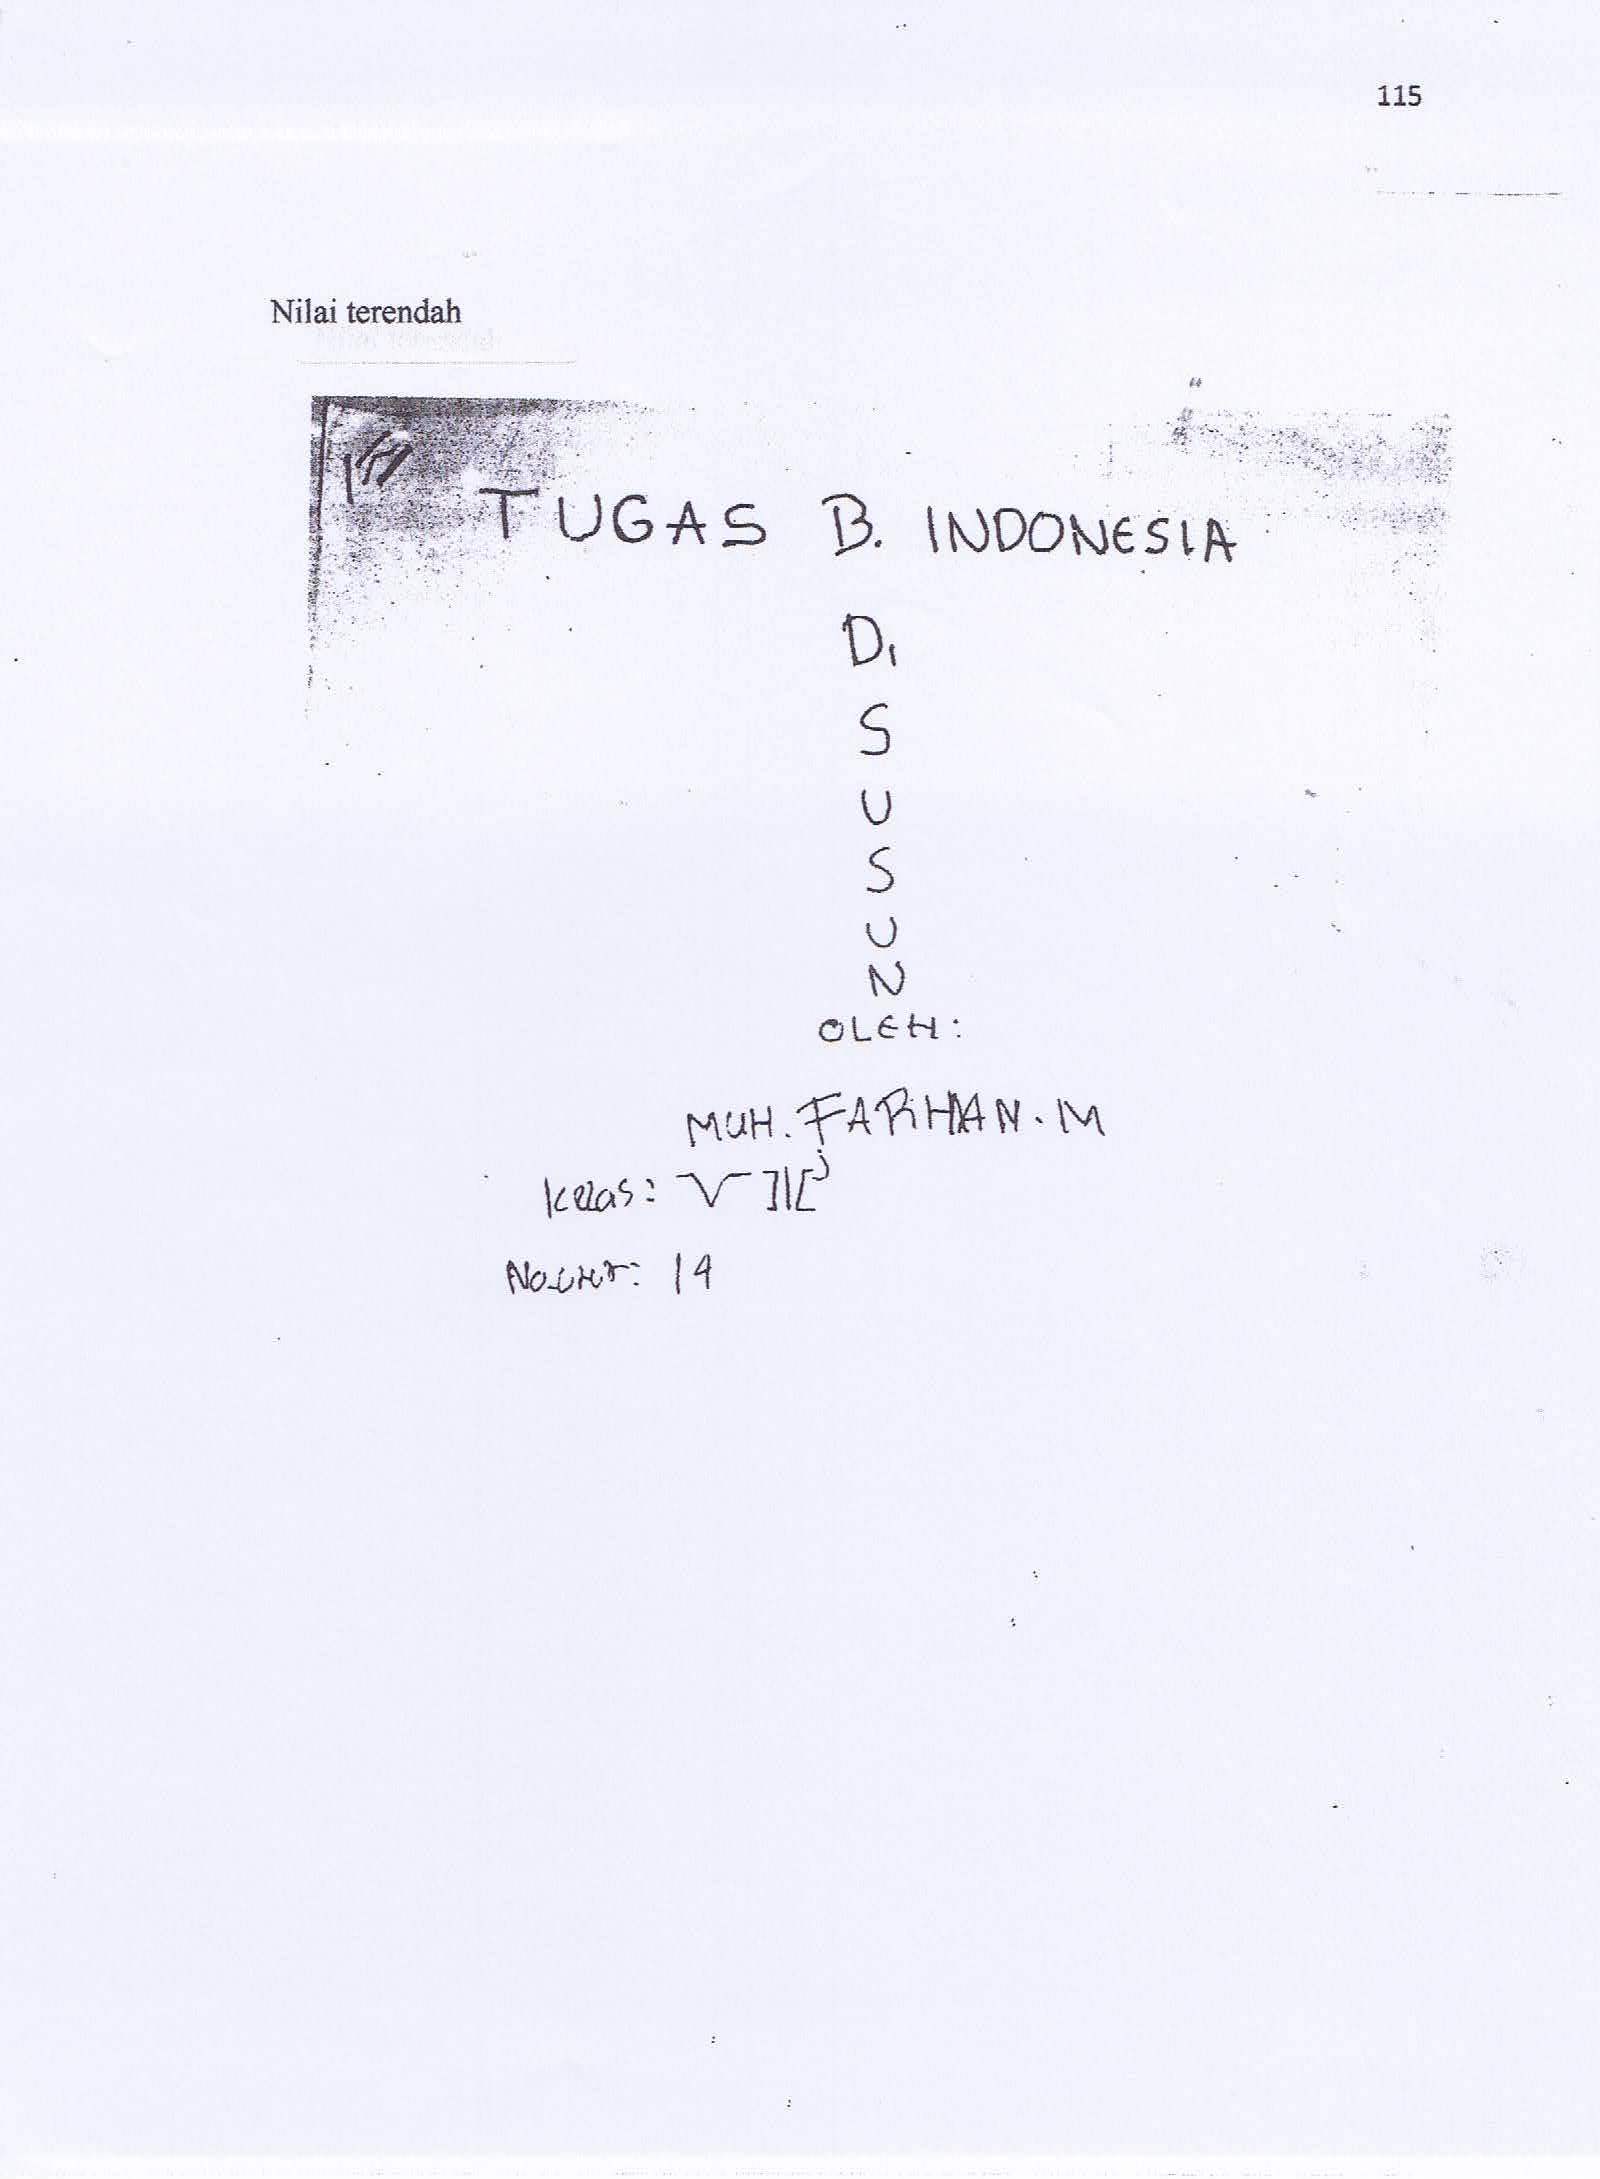 115
Nilai terendah
TUGAS B. INDONESIA
Di
S
U
S
U
N
OLEH:
MUH. FARHAN. M
Kelas:
No.urut: 14